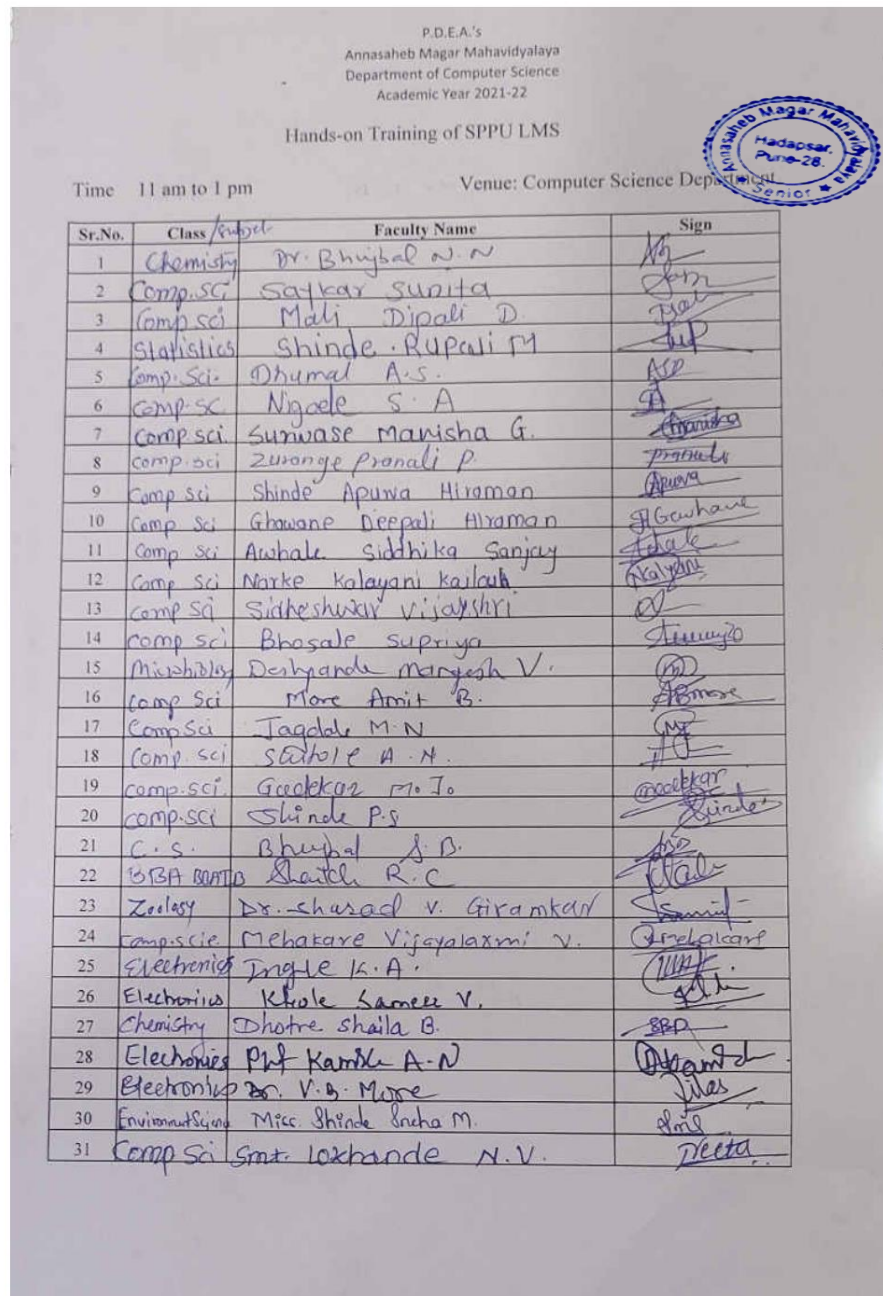 P.D.E.A.'s
Annasaheb Magar Mahavidyalaya
Department of Computer Science
Academic Year 2021-22
Hands-on Training of SPPU LMS
Annasaheb Magar Mahavidyalaya
Hadapsar,
Pune-28.
★ Senior ★
Time 11 am to 1 pm Venue: Computer Science Department
Sr.No. Class /subject Faculty Name Sign
1 Chemistry Dr. Bhujbal N.N
2 Comp.Sci Satkar Sunita
3 Comp sci Mali Dipali D.
4 Statistics Shinde . Rupali M
5 Comp. Sci. Dhumal A.S. ASD
6 Comp.SC S. A
7 Comp sci. Surwase Manisha G. Manisha
8 comp.sci Zurange Pranali P. Pranali
9 Comp Sci Shinde Apurva Hiraman Apurva
10 Comp Sci Ghawane Deepali Hiraman
11 Comp Sci Awhale Siddhika Sanjay
12 Comp Sci Narke Kalayani Kailash Kalyani
13 Comp Sci Sidheshwar Vijayshri
14 Comp Sci Bhosale Supriya
15 Microbiology Deshpande Mangesh V.
16 Comp Sci More Amit B. ABmore
17 Comp Sci Jagdale M.N
18 Comp. Sci A.N.
19 comp.sci. Gadekar M.J.
20 comp.sci Shinde P.S Shinde
21 C.S. Bhujbal S.B.
22 BBA Shaikh R.C
23 Zoology Dr. Sharad V. Giramkar
24 Comp.scie. Mehakare Vijayalaxmi V.
25 Electronics Ingle K.A.
26 Electronics Khole Sameer V.
27 Chemistry Dhotre Shaila B. SBD
28 Electronics Prof Kamble A.N
29 Electronics Dr. V.B. More Vilas
30 Environment Science Miss. Shinde Sneha M.
31 Comp Sci Smt. Lokhande N.V. Neeta